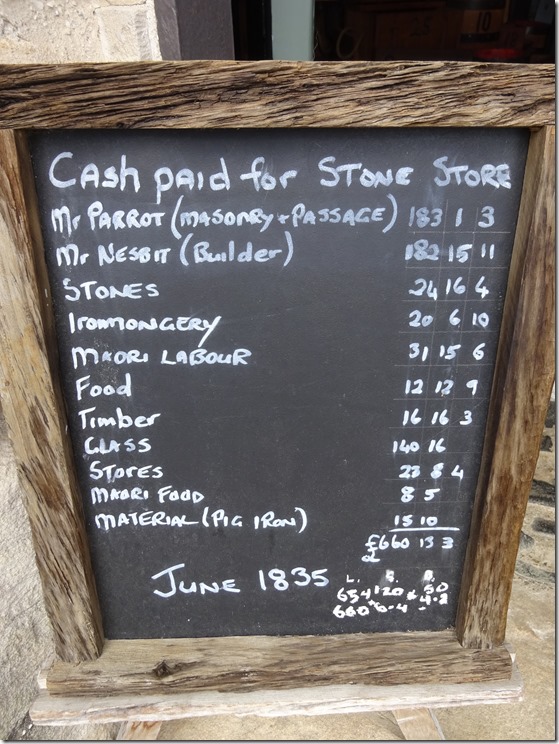 Cash paid for STONE STORE
Mr PARROT (MASONRY + PASSAGE) 183 1 3
Mr NESBIT (Builder) 182 15 11
STONES 24 16 4
IRONMONGERY 20 6 10
MAORI LABOUR 31 15 6
Food 12 12 9
Timber 16 16 3
GLASS 140 16
STORES 23 8 4
MAORI FOOD 8 5
MATERIAL (PIG IRON) 15 10
£660 13 3
JUNE 1835
L. S. D.
654 120 50
660 6-4